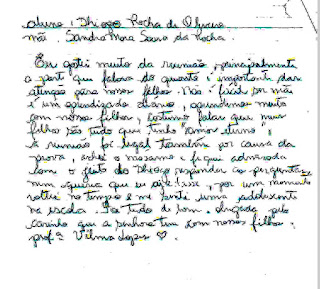 aluno: Thiago Rocha de Oliveira
mãe. Sandra Mara Souza da Rocha.
Eu gotei muito da reunião, principalmente
a parte que falava do quanto é importante dar
atenção para nossos filhos. Não é fácil ser mãe
é um aprendizado diario, aprendemos muito
com nossos filhos, costumo falar que meus
filhos são tudo que tenho "amor eterno",
A reunião foi legal também por causa da
prova, achei o maximo e fiquei admirada
com o jeito do Thiago responder as perguntas
nem queira que eu, por um momento
voltei no tempo e me senti uma adolescente
na escola. Foi tudo de bom. obrigada pelo
carinho que a senhora tem com nossos filhos.
profª Vilma Lopes ♡.